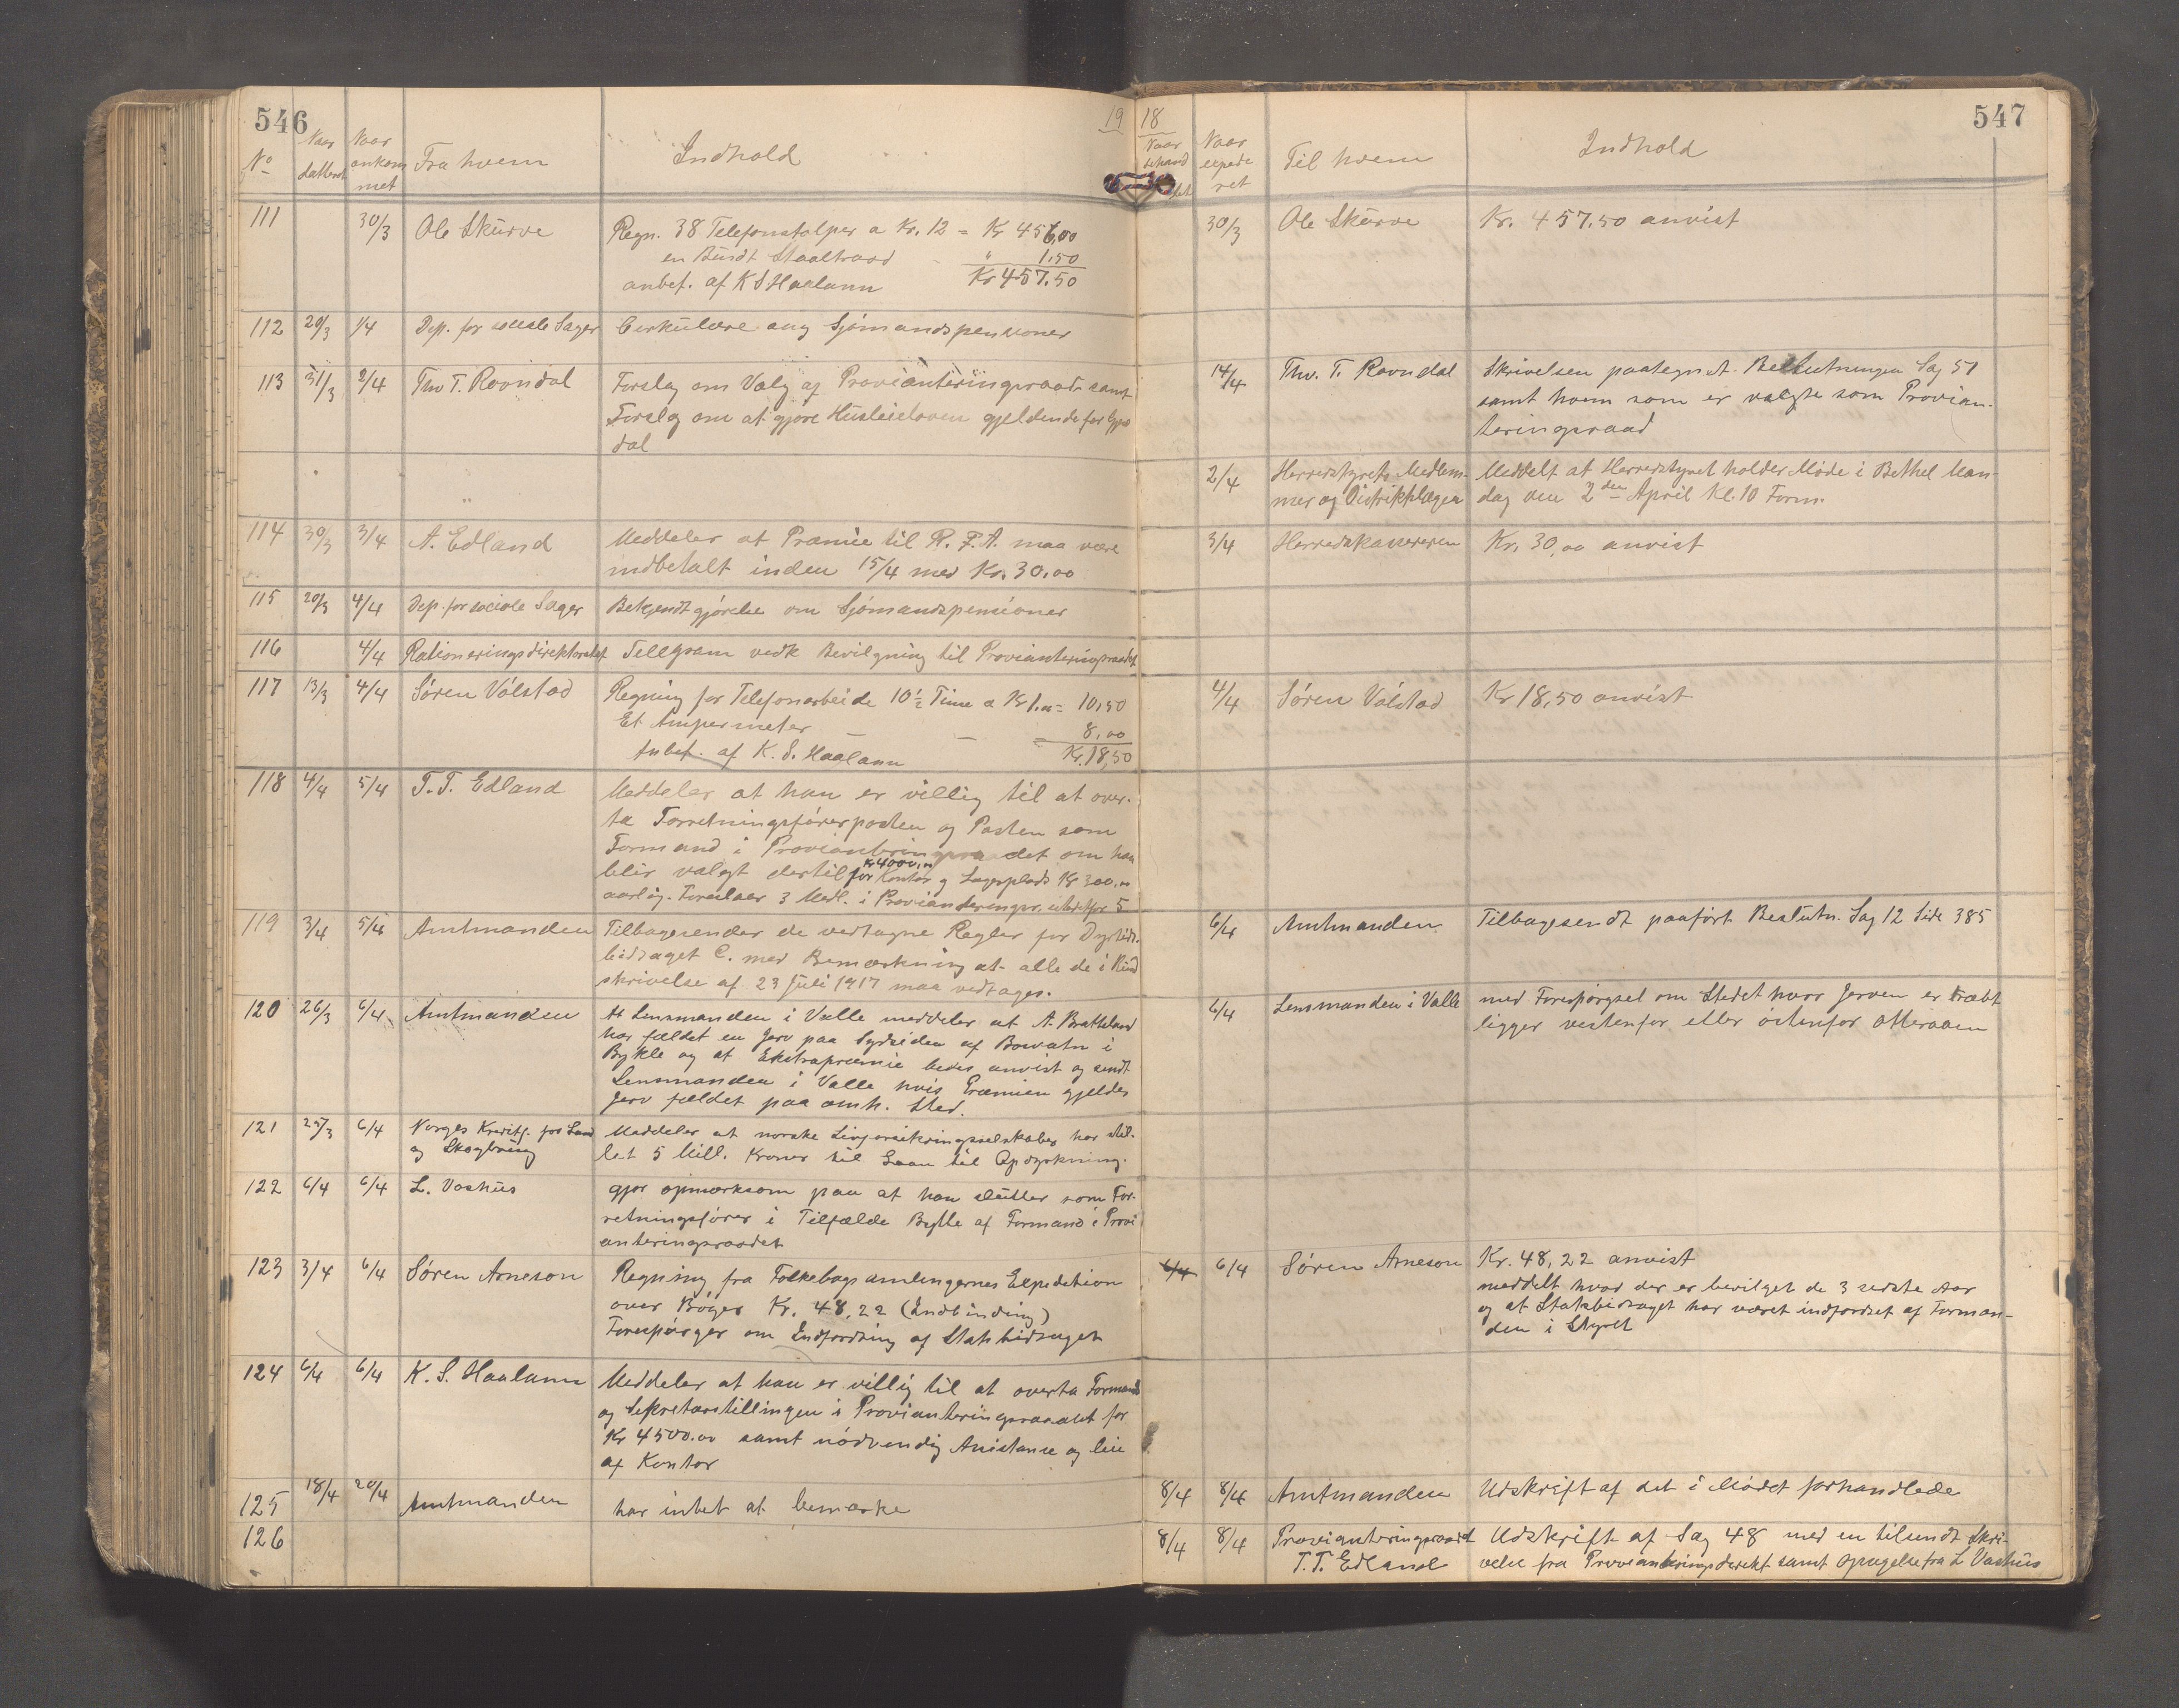 546
19
No
Naar datteret
Naar ankommet
Fra hvem
Indhold
111 30/3 Ole Skurve Regn. 38 Telefonstolper a Kr. 12 = Kr 456,00
en Bundt Staaltraad " 1.50
anbef. af K S Haaland Kr 457.50
112 20/3 1/4 Dep. for sociale Sager Cirkulære ang Sjømandspensioner
113 31/3 2/4 Thv T. Ravndal Forslag om Valg af Provianteringsraad samt
Forslag om at gjøre Husleieloven gjeldende for
dal
114 30/3 3/4 A. Edland Meddeler at Præmie til R. F. A. maa være
indbetalt inden 15/4 med Kr. 30.00
115 20/3 4/4 Dep. for sociale Sager Bekjendtgjørelse om Sjømandspensioner
116 4/4 Rationeringsdirektoratet Tellgram vedk Bevilgning til Provianteringsraadet
117 13/3 4/4 Søren Vølstad Regning for Telefonarbeide 10 1/2 Time a Kr 1.00 = 10,50
Et Ampermeter — — = 8,00
Anbef. af K. S. Haaland Kr. 18,50
118 4/4 5/4 T. T. Edland Meddeler at han er villig til at over-
ta Forretningsførerposten og Posten som
Formand i Provianteringsraadet om han
blir valgt dertil for Kr 4000,00 Kontor og Lagerplads Kr 300,00
aarlig. Foreslaar 3 Medl. i Provianteringsr. istedetfor 5
119 3/4 5/4 Amtmanden Tilbagesender de vedtagne Regler for Dyrtids-
bidraget C. med Bemærkning at alle de i Rund
skrivelse af 23 Juli 1917 maa vedtages.
120 26/3 6/4 Amtmanden At Lensmanden i Valle meddeler at A. Bratteland
har fældet en Jerv paa Sydsiden af Bovatn i
Bykle og at Ekstrapræmie bedes anvist og sendt
Lensmanden i Valle hvis Præmien gjelder
Jerv fældet paa omh. Sted.
121 25/3 6/4 Norges Kreditf. for Land Meddeler at norske Livsforsikringsselskaber har stil-
og Skogbrug let 5 Mill. Kroner til Laan til Opdyrkning.
122 6/4 6/4 L. Vashus gjør opmærksom paa at han slutter som For-
retningsfører i Tilfælde Bytte af Formand i Provi
anteringsraadet
123 3/4 6/4 Søren Arneson Regning fra Folkebogsamlingernes Expedition
over Bøger Kr. 48,22 (Indbinding)
Forespørger om Indfordring af Statsbidraget
124 6/4 6/4 K. S. Haaland Meddeler at han er villig til at overta Formands
og Sekretærstillingen i Provianteringsraadet for
Kr 4500.00 samt nødvendig Assistanse og leie
af Kontor
125 18/4 20/4 Amtmanden har intet at bemærke
126
547
18
Naar behandlet
Naar expederet
Til hvem
Indhold
30/3 Ole Skurve Kr. 457.50 anvist
14/4 Thv. T. Ravndal Skrivelsen paategnet Beslutningen Sag 51
samt hvem som er valgte som Provian-
teringsraad
2/4 Herredstyrets Medlem- Meddelt at Herredstyret holder Møde i Bethel Man-
mer og Distriktslægen dag den 2den April Kl. 10 Form.
3/4 Herredskassereren Kr. 30,00 anvist
4/4 Søren Vølstad Kr 18,50 anvist
6/4 Amtmanden Tilbagesendt paaført Beslutn. Sag 12 Side 385
6/4 Lensmanden i Valle med Forespørgsel om Stedet hvor Jerven er dræbt
ligger vestenfor eller østenfor Otteraaen
6/4 6/4 Søren Arneson Kr. 48,22 anvist
meddelt hvad der er bevilget de 3 sidste Aar
og at Statsbidraget har været indfordret af Forman-
den i Styret
8/4 8/4 Amtmanden Utskrift af det i Mødet forhandlede
8/4 8/4 Provianteringsraadet Udskrift af Sag 48 med en tilsendt Skri-
T. T. Edland velse fra Provianteringsdirekt samt opsigelse fra L Vashus